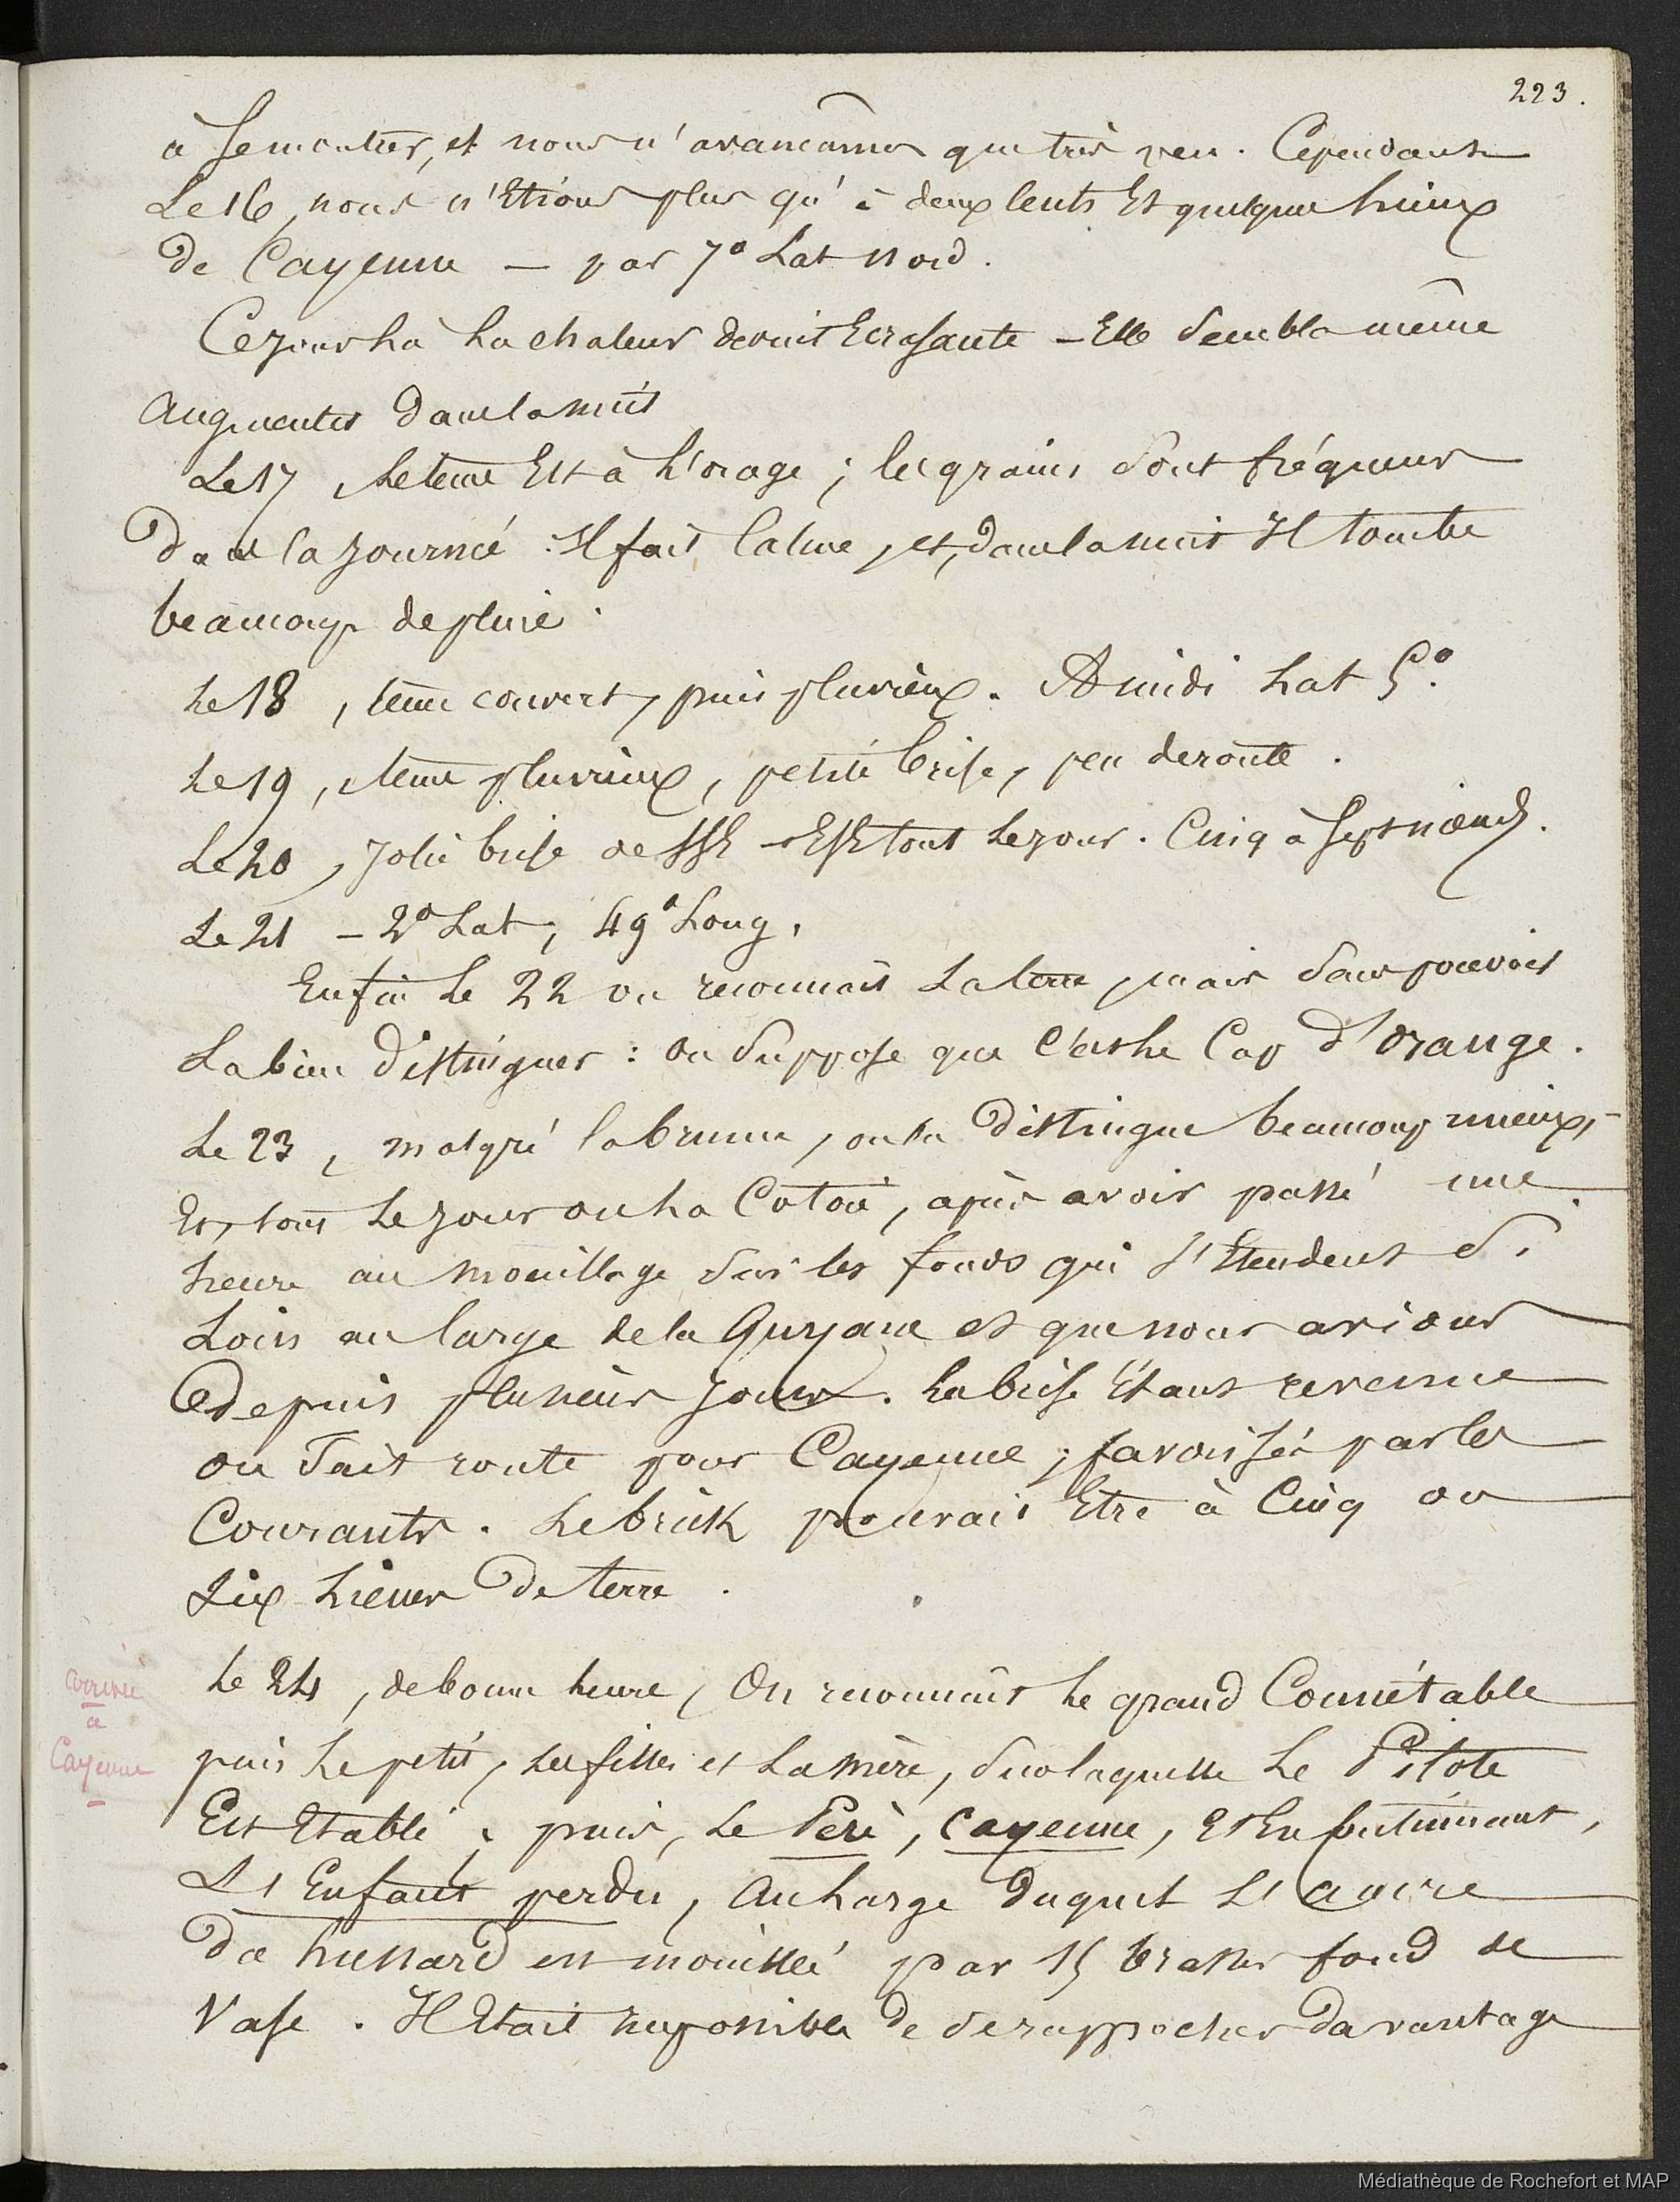 223.
à se montrer, et nous n'avançâmes que très peu. Cependant
Le 16, nous n'Etions plus qu'à deux cents Et quelques lieues
De Cayenne — par 7° Lat Nord.
Ce jour là La chaleur devint Ecrasante — Elle sembla même
Augmenter Dans la nuit
Le 17 Le tems Est à l'orage ; les grains sont fréquens
Dans la journée. Il fait Calme, et, dans la nuit Il tombe
beaucoup de pluie.
Le 18, tems couvert, puis pluvieux. A midi Lat 5°.
Le 19, tems pluvieux, petite brise, peu de route.
Le 20, Jolie brise de SSE - ESE tout Le jour. Cinq à Sept nœuds.
Le 21 — 2° Lat, 49° Long,
Enfin Le 22 on reconnaît La terre, mais sans pouvoir
La bien Distinguer : On Suppose que C'est le Cap D'Orange.
Le 23, malgré la brume, on la Distingue beaucoup mieux,
Et, tout Le jour on La Cotoie, après avoir passé une
heure au mouillage sur les fonds qui s'Etendent si
Loin au large de la Guyane et que nous avions
Depuis plusieurs Jours. La brise Etant revenue
on Fait route pour Cayenne, favorisés par les
Courants. Le brick pouvait Etre à Cinq ou
Six Lieues De terre.
Le 24, de bonne heure, On reconnaît Le grand Connétable
puis Le petit, Les filles et La Mère, sur laquelle Le Pilote
Est Etabli ; puis, Le Père, Cayenne, Et En finissant,
L'Enfant perdu, Au Large Duquel L'avire
Da hussard est mouillé par 15 brasses fond de
Vase. Il Etait impossible De se rapprocher Davantage
arrivée
à
Cayenne
Médiathèque de Rochefort et MAP